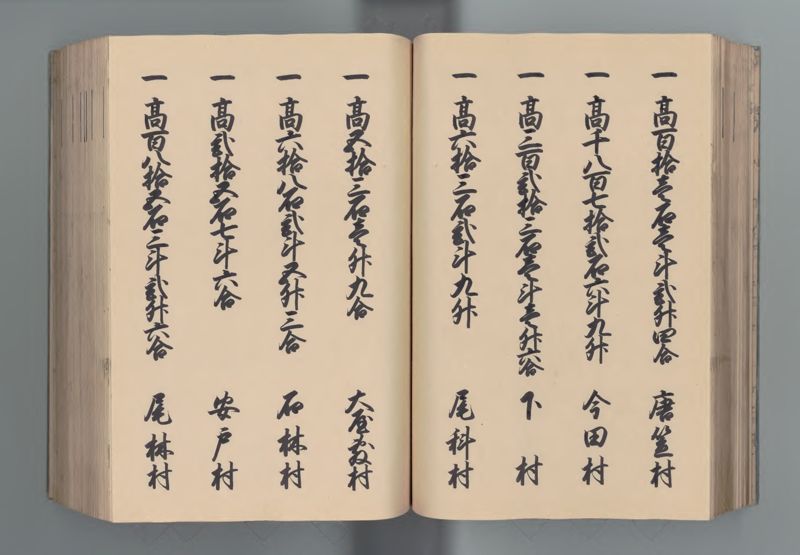 一 高百拾壱石壱斗弐升四合 唐笠村
一 高千八百七拾弐石六斗九升 今田村
一 高三百弐拾三石壱斗壱升六合 下村
一 高六拾三石弐斗九升 尾科村
一 高五拾三石壱升九合 大屋敷村
一 高六拾八石弐斗五升三合 石林村
一 高弐拾五石七斗六合 安戸村
一 高百八拾五石三斗弐升六合 尾林村